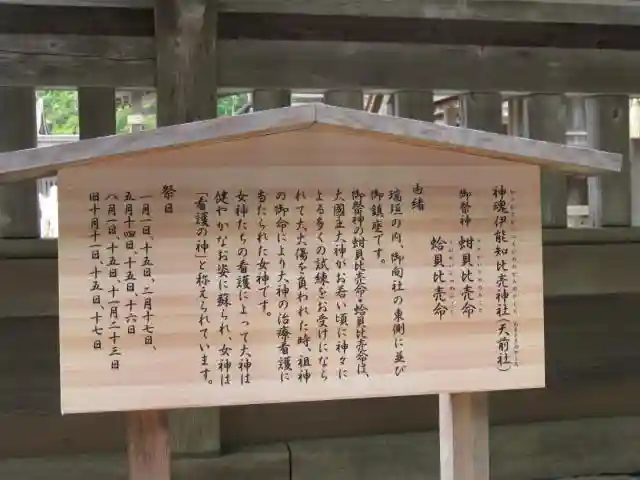 神魂伊能知比売神社（天前社）
御祭神　蚶貝比売命
蛤貝比売命
由緒
瑞垣の内、御向社の東側に並び
御鎮座です。
御祭神の蚶貝比売命・蛤貝比売命は、
大國主大神がお若い頃に神々に
よる多くの試練をお受けになら
れて大火傷を負われた時、祖神
の御命により大神の治療看護に
当たられた女神です。
女神たちの看護によって大神は
健やかなお姿に蘇られ、女神は
「看護の神」と称えられています。
祭日
一月一日、十五日、二月十七日、
五月十四日、十五日、十六日
八月一日、十五日、十一月二十三日
旧十月十一日、十五日、十七日